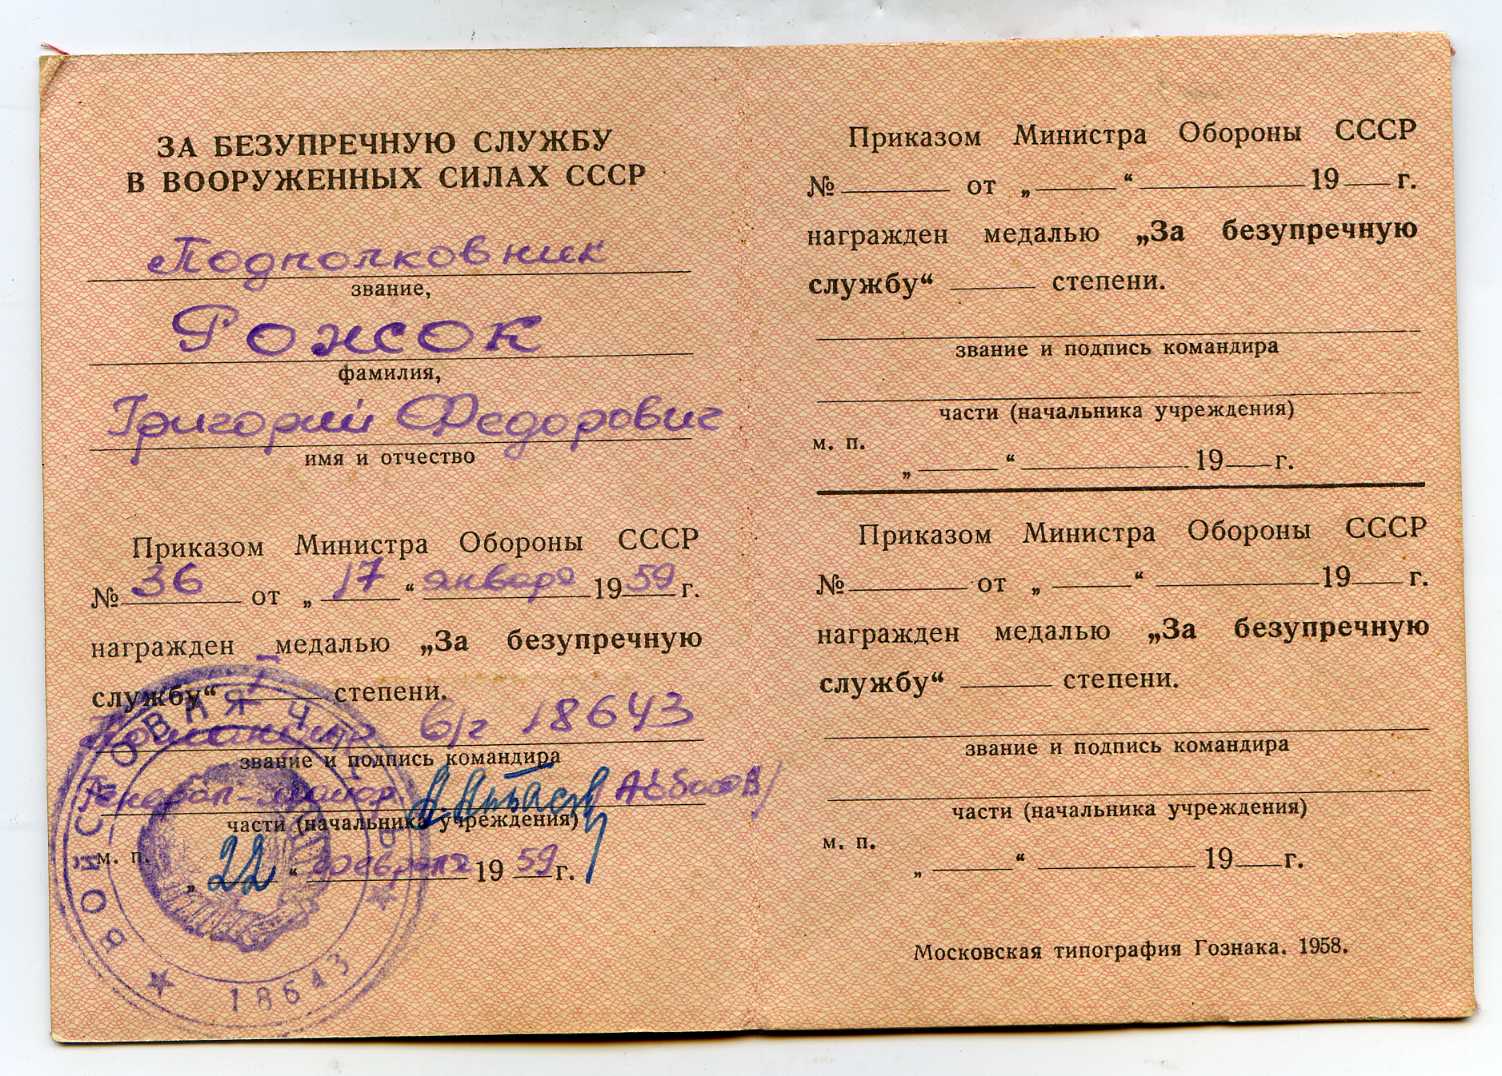 ЗА БЕЗУПРЕЧНУЮ СЛУЖБУ
В ВООРУЖЕННЫХ СИЛАХ СССР
Подполковник
звание,
Рожсок
фамилия,
Григорий Федорович
имя и отчество
Приказом Министра Обороны СССР
№ 36 от „ 17 “ января 19 59 г.
награжден медалью „За безупречную
службу“ I степени.
Командир в/ч 18643
звание и подпись командира
Генерал-майор А. Аббасов /Аббасов/
части (начальника учреждения)
м. п.
„ 22 “ февраля 19 59 г.
ВОЙСКОВАЯ ЧАСТЬ
18643
Приказом Министра Обороны СССР
№ от „ “ 19 г.
награжден медалью „За безупречную
службу“ степени.
звание и подпись командира
части (начальника учреждения)
м. п.
„ “ 19 г.
Приказом Министра Обороны СССР
№ от „ “ 19 г.
награжден медалью „За безупречную
службу“ степени.
звание и подпись командира
части (начальника учреждения)
м. п.
„ “ 19 г.
Московская типография Гознака. 1958.